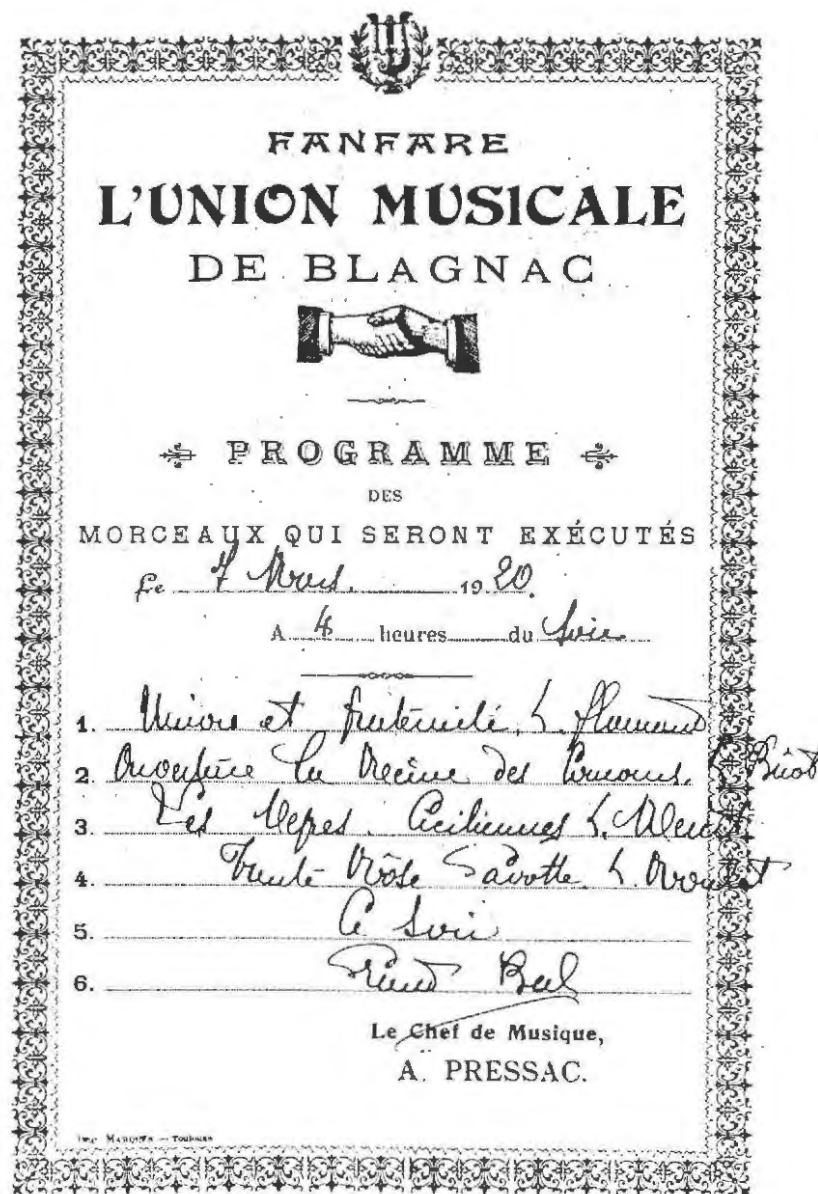 FANFARE
L'UNION MUSICALE
DE BLAGNAC
PROGRAMME
DES
MORCEAUX QUI SERONT EXÉCUTÉS
Le 7 Mars. 1920.
A 4 heures du Soir
1. Union et fraternité,
2. Ouverture La Reine des
3. Les Ceciliennes
4. Gavotte
5. Ce Soir
6. Grand Bal
Le Chef de Musique,
A. PRESSAC.
Imp. MARQUÈS — TOULOUSE